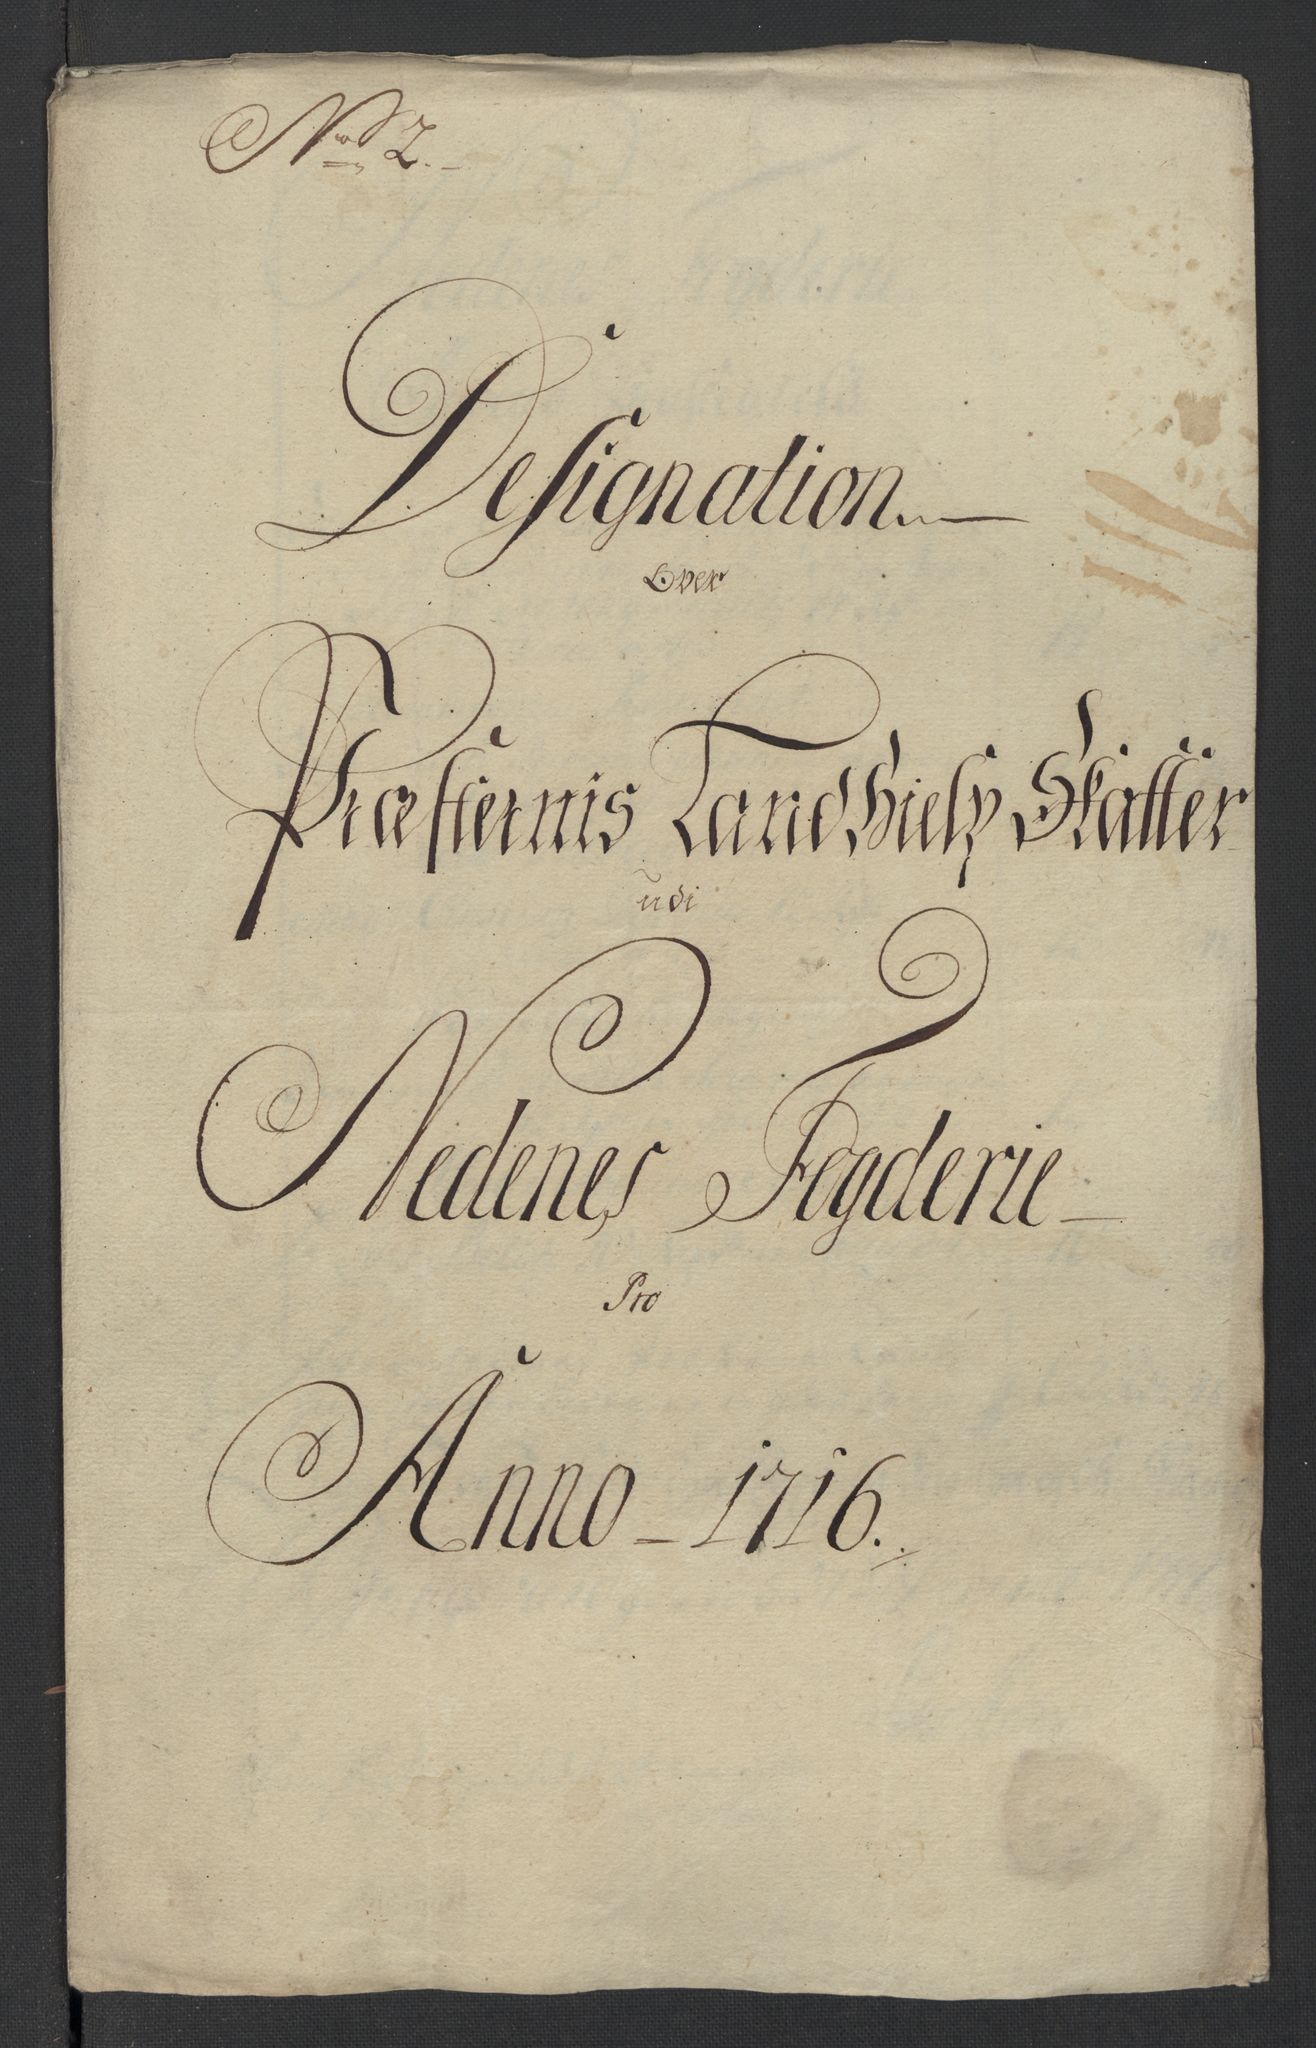 No 2.
Designation
Over
Præsternis Land Hielp Skatter
udi
Nedenes Fogderie
Pro
Anno 1716.